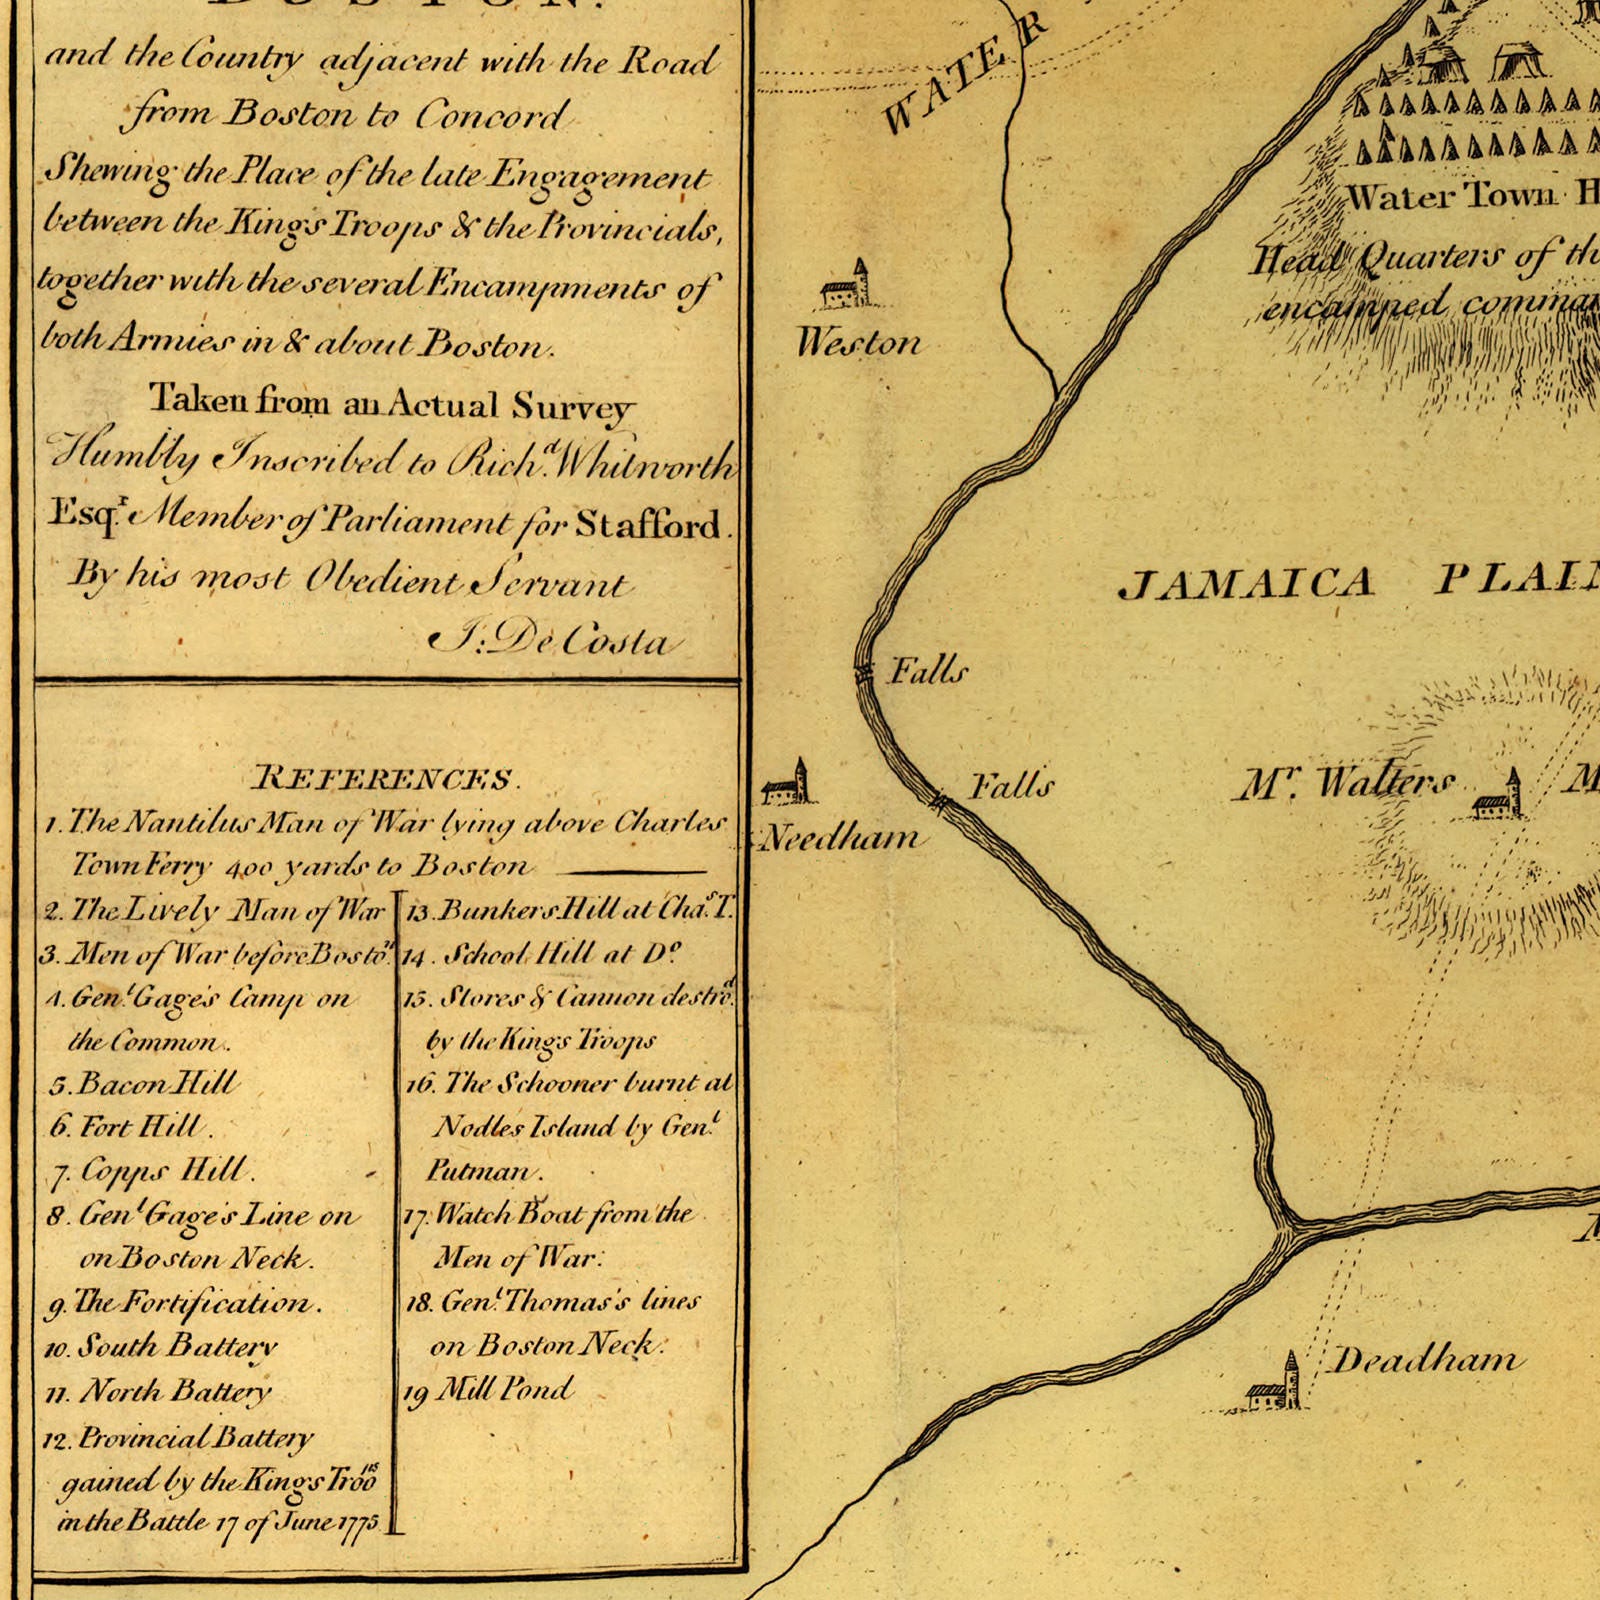 BOSTON.
and the Country adjacent with the Road
from Boston to Concord
Shewing the Place of the late Engagement
between the King's Troops & the Provincials,
together with the several Encampments of
both Armies in & about Boston.
Taken from an Actual Survey
Humbly Inscribed to Richd. Whitworth
Esqr. Member of Parliament for Stafford.
By his most Obedient Servant
J: De Costa
REFERENCES.
1. The Nantilus Man of War lying above Charles
Town Ferry 400 yards to Boston
2. The Lively Man of War
3. Men of War before Boston
4. Genl. Gage's Camp on
the Common.
5. Bacon Hill
6. Fort Hill.
7. Copps Hill.
8. Genl Gage's Line on
on Boston Neck.
9. The Fortification.
10. South Battery
11. North Battery
12. Provincial Battery
gained by the Kings Troops
in the Battle 17 of June 1775
13. Bunkers Hill at Chas. T.
14. School Hill at Do.
15. Stores & Cannon destrod.
by the Kings Troops
16. The Schooner burnt at
Nodles Island by Genl.
Putman.
17. Watch Boat from the
Men of War:
18. Genl. Thomas's lines
on Boston Neck.
19 Mill Pond
WATER
Water Town H
Head Quarters of th
encamped comman
Weston
JAMAICA PLAIN
Falls
Falls
Mr. Walters
M
Needham
M
Deadham